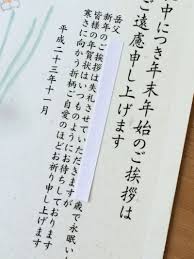 中につき年末年始のご挨拶は
ご遠慮申し上げます
岳父 歳で永眠い
新年のご挨拶は失礼させていただきますが
皆様の年賀状はいつものようにお待ちしております
寒さに向かう折柄ご自愛のほどお祈り申し上げます
平成二十三年十一月